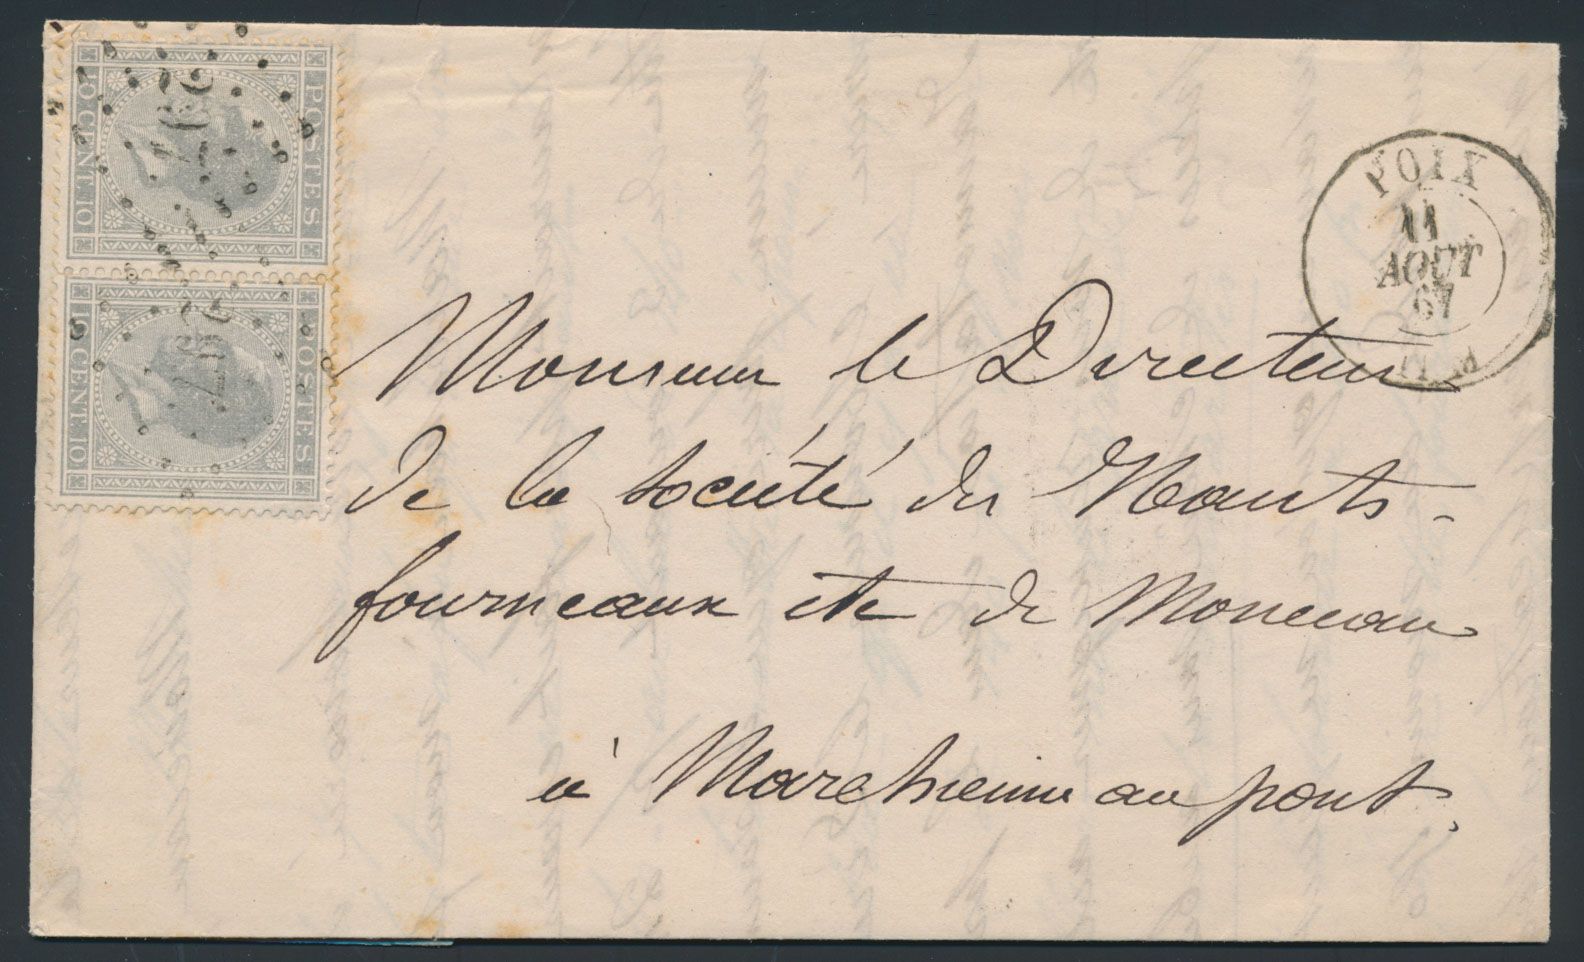 POSTES
10 CENT. 10
POSTES
10 CENT. 10
POIX
11
AOUT
67
Monsieur le Directeur
de la société des Hauts-
fourneaux etc de Monceau
à Marchienne au pont.